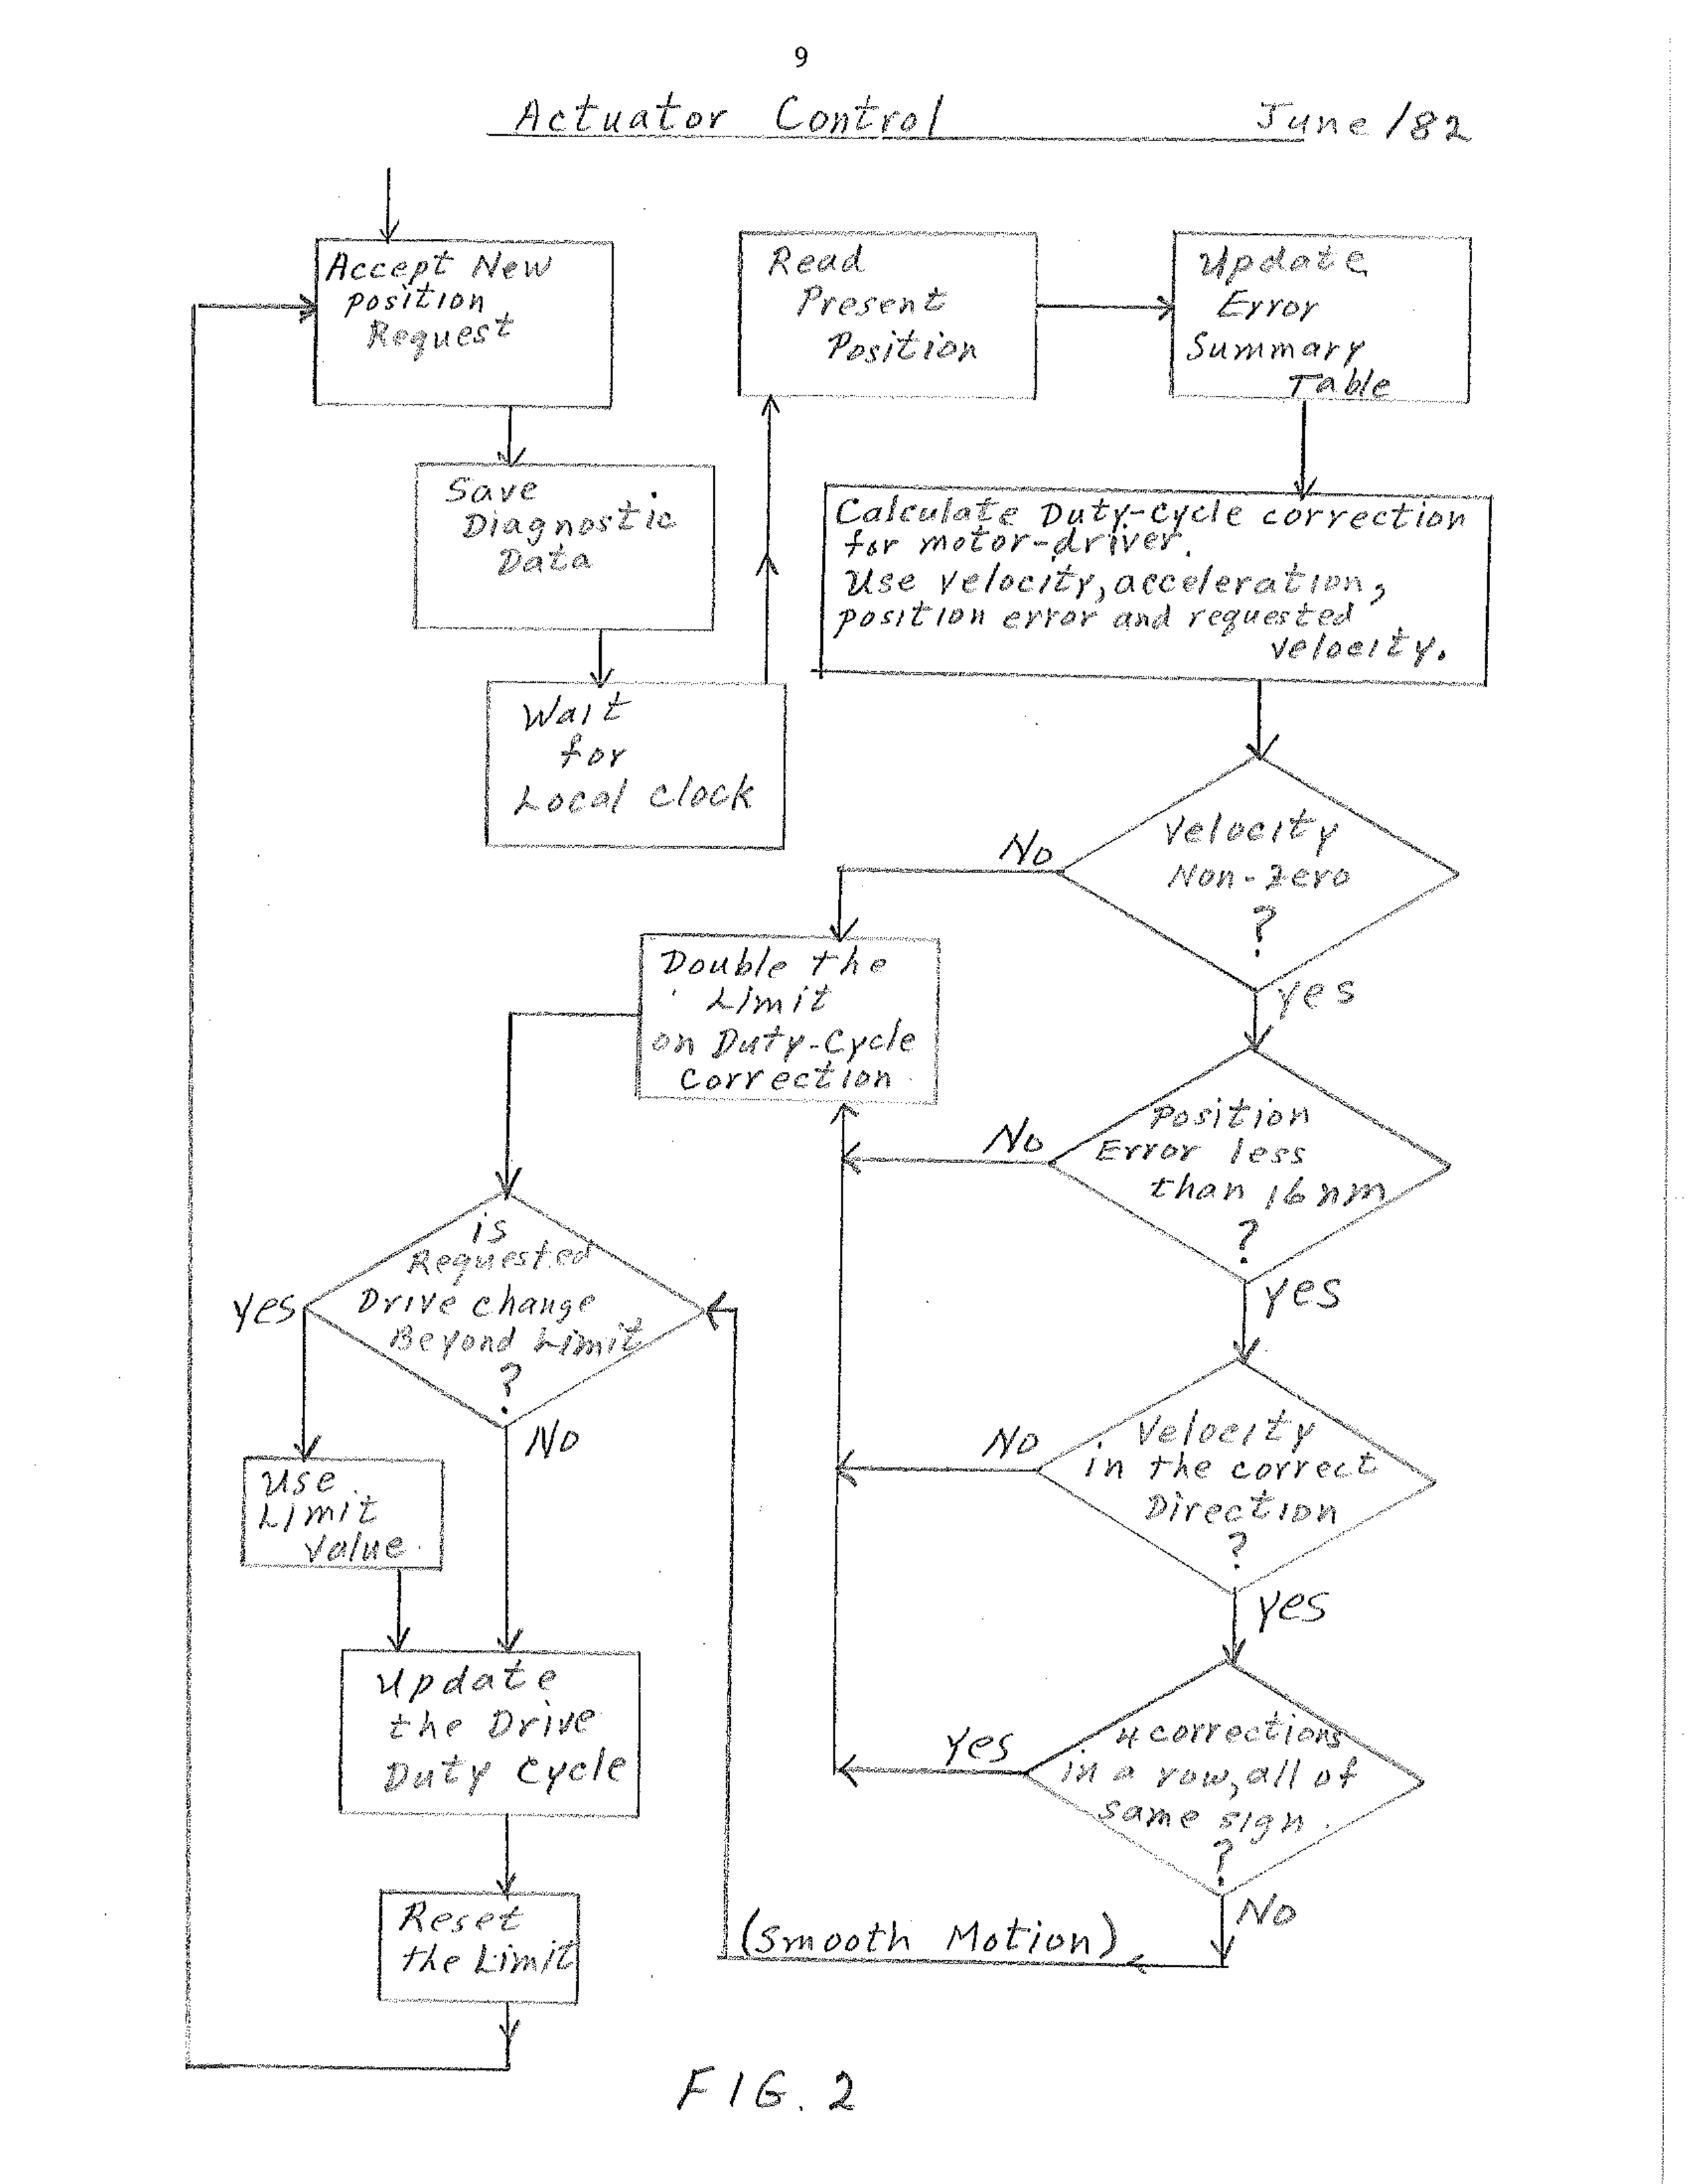 9
Actuator Control June/82
Accept New
position
Request
Save
Diagnostic
Data
Wait
for
Local clock
Read
Present
Position
Update
Error
Summary
Table
Calculate Duty-Cycle correction
for motor-driver.
Use velocity, acceleration,
position error and requested
velocity.
Velocity
Non-Zero
?
No
yes
Double the
Limit
on Duty-Cycle
Correction
Position
Error less
than 16 nm
?
No
yes
Velocity
in the correct
Direction
?
No
yes
4 corrections
in a row, all of
same sign.
?
Yes
No
(Smooth Motion)
is
Requested
Drive change
Beyond Limit
?
yes
No
Use
Limit
Value
Update
the Drive
Duty Cycle
Reset
the Limit
FIG. 2